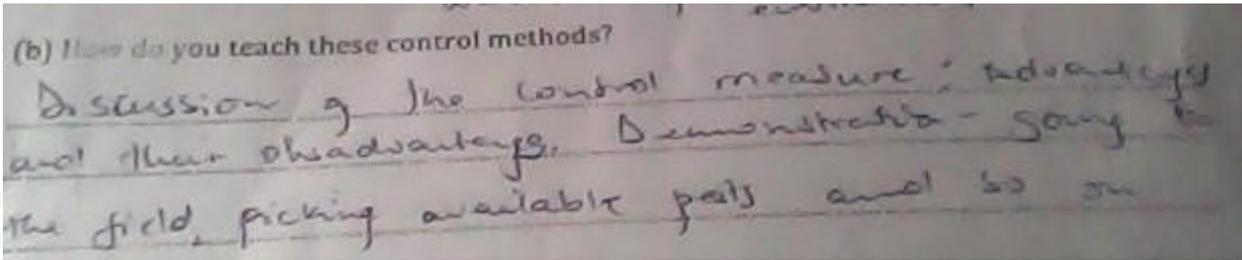 (b) How do you teach these control methods?
Discussion of the control measure; advantages
and their disadvantages. Demonstration - going to
the field, picking available pests and so on